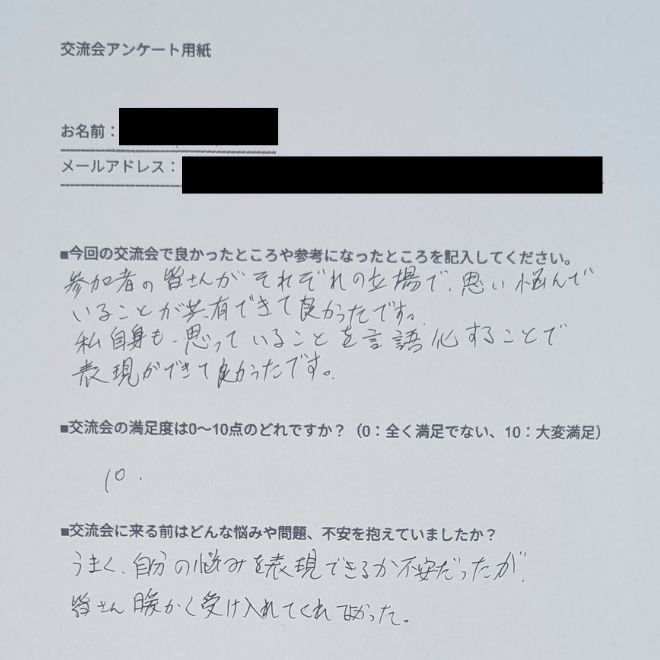 交流会アンケート用紙
お名前：
メールアドレス：
■今回の交流会で良かったところや参考になったところを記入してください。
参加者の皆さんがそれぞれの立場で、思い悩んで
いることが共有できて良かったです。
私自身も、思っていることを言語化することで
表現ができて良かったです。
■交流会の満足度は0〜10点のどれですか？（0：全く満足でない、10：大変満足）
10.
■交流会に来る前はどんな悩みや問題、不安を抱えていましたか？
うまく、自分の悩みを表現できるか不安だったが、
皆さん暖かく受け入れてくれてよかった。